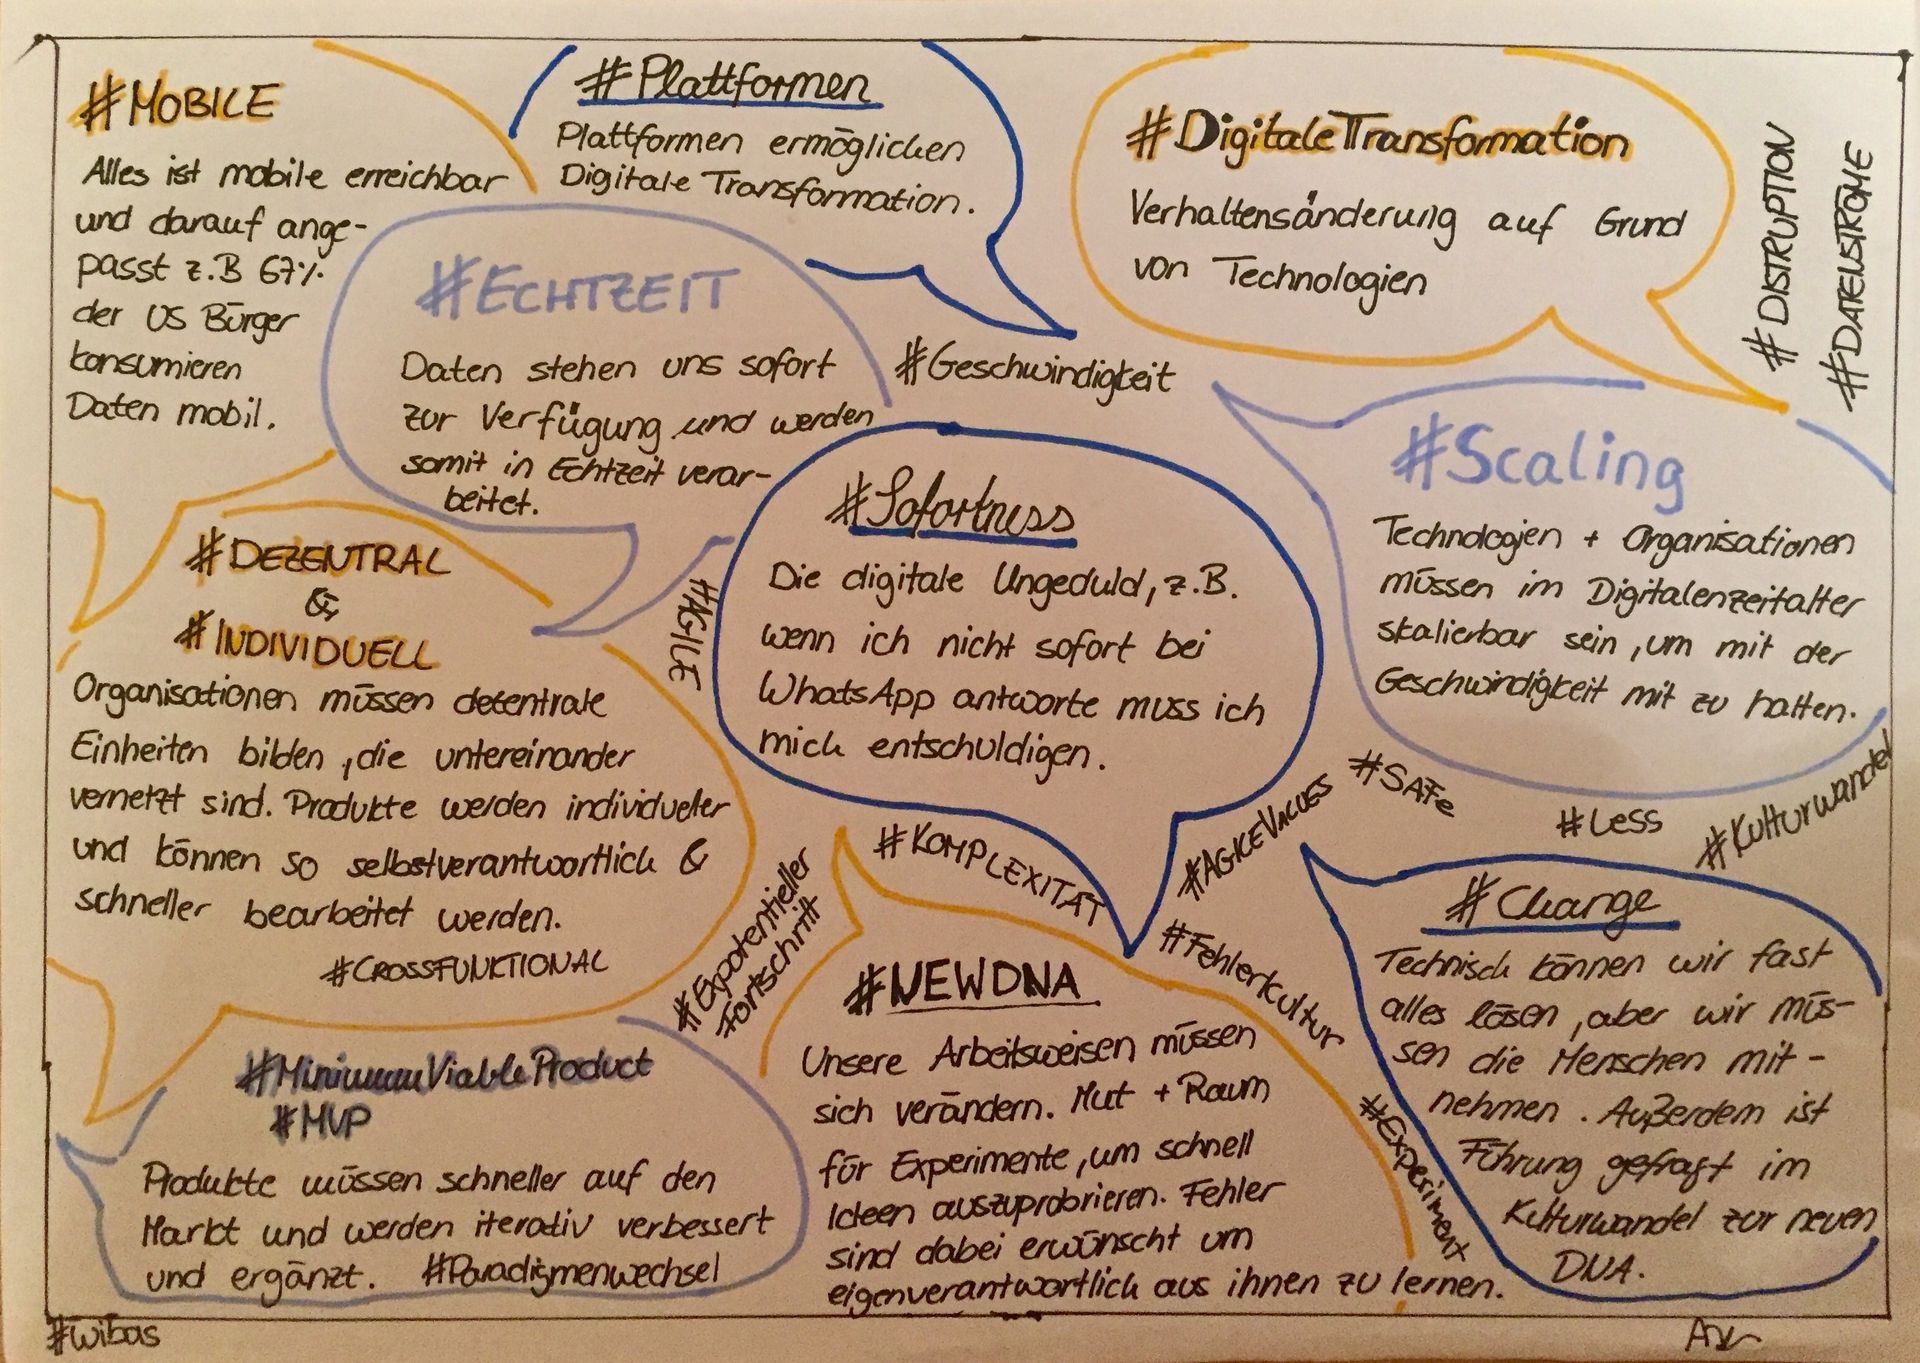 #MOBILE
Alles ist mobile erreichbar
und darauf ange-
passt z.B 67%
der US Bürger
konsumieren
Daten mobil.
#Plattformen
Plattformen ermöglichen
Digitale Transformation.
#DigitaleTransformation
Verhaltensänderung auf Grund
von Technologien
#DISTRUPTION
#DATENSTRÖME
#ECHTZEIT
Daten stehen uns sofort
zur Verfügung und werden
somit in Echtzeit verar-
beitet.
#Geschwindigkeit
#Scaling
Technologien + Organisationen
müssen im Digitalenzeitalter
skalierbar sein, um mit der
Geschwindigkeit mit zu halten.
#Sofortness
Die digitale Ungeduld, z.B.
wenn ich nicht sofort bei
WhatsApp antworte muss ich
mich entschuldigen.
#AGILE
#DEZENTRAL
&
#INDIVIDUELL
Organisationen müssen dezentrale
Einheiten bilden, die untereinander
vernetzt sind. Produkte werden individueller
und können so selbstverantwortlich &
schneller bearbeitet werden.
#CROSSFUNKTIONAL
#Expotentieller
Fortschritt
#KOMPLEXITÄT
#AGILEVALUES
#SAFe
#LESS
#Kulturwandel
#Fehlerkultur
#Experiment
#MinimumViableProduct
#MVP
Produkte müssen schneller auf den
Markt und werden iterativ verbessert
und ergänzt. #Paradigmenwechsel
#NEWDNA
Unsere Arbeitsweisen müssen
sich verändern. Mut + Raum
für Experimente, um schnell
Ideen auszuprobrieren. Fehler
sind dabei erwünscht um
eigenverantwortlich aus ihnen zu lernen.
#Change
Technisch können wir fast
alles lösen, aber wir müs-
sen die Menschen mit-
nehmen. Außerdem ist
Führung gefragt im
Kulturwandel zur neuen
DNA.
#wibas